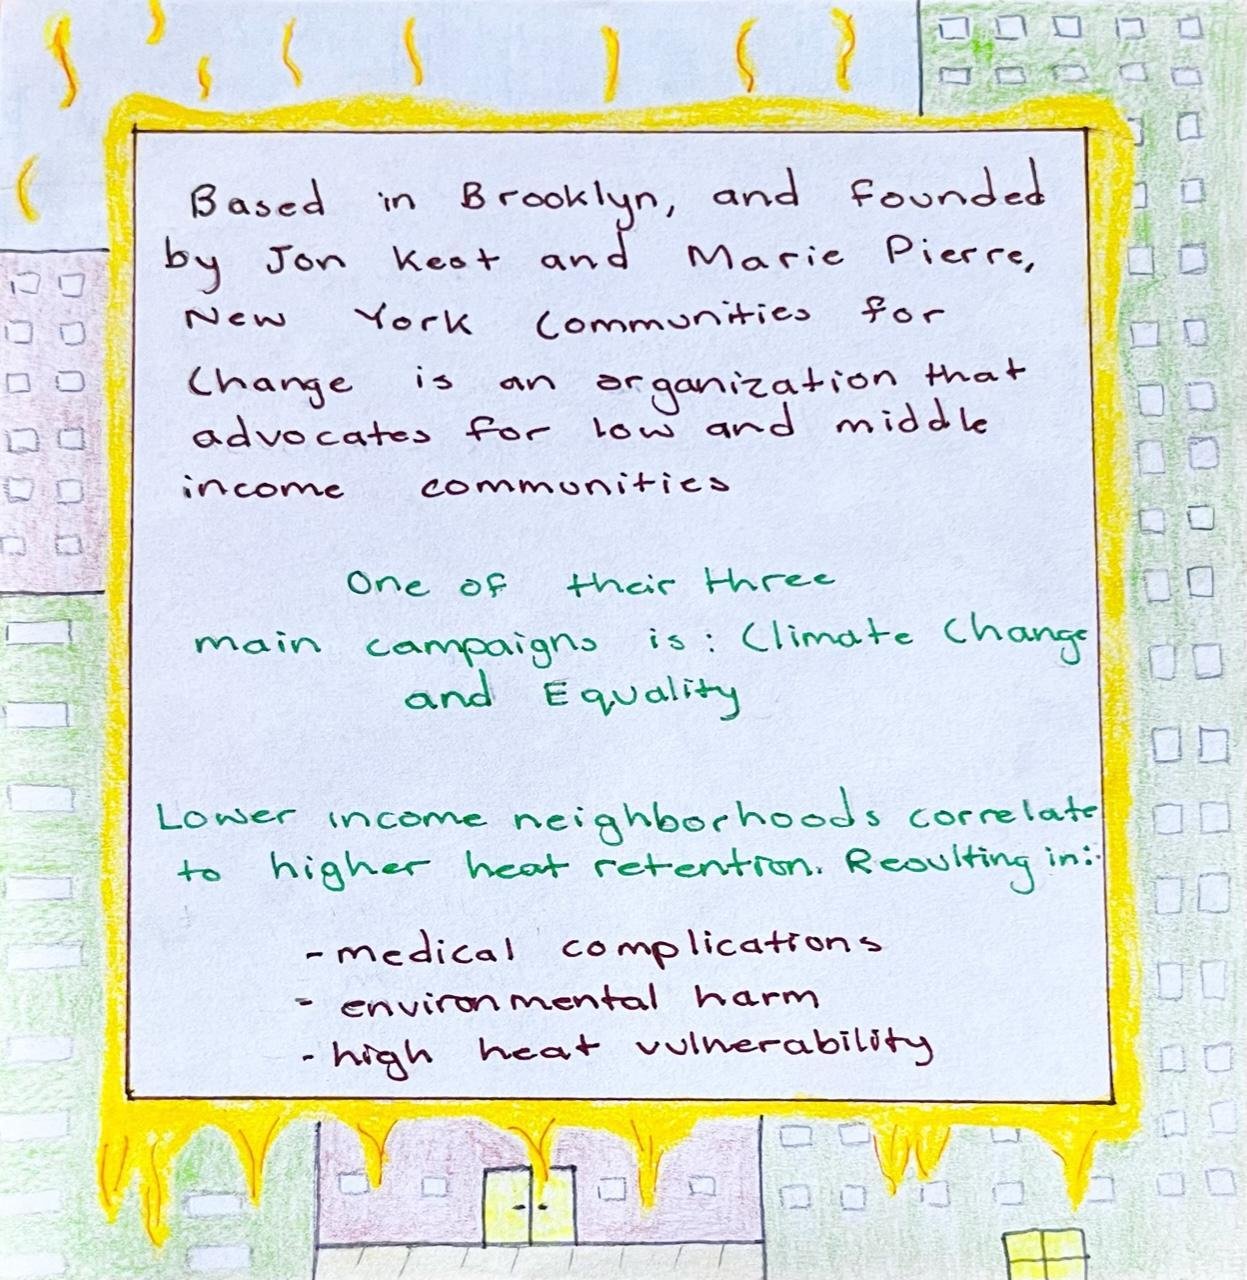 Based in Brooklyn, and founded
by Jon Keat and Marie Pierre,
New York Communities for
Change is an organization that
advocates for low and middle
income communities
One of their three
main campaigns is: Climate Change
and Equality
Lower income neighborhoods correlate
to higher heat retention. Resulting in:
- medical complications
- environmental harm
- high heat vulnerability